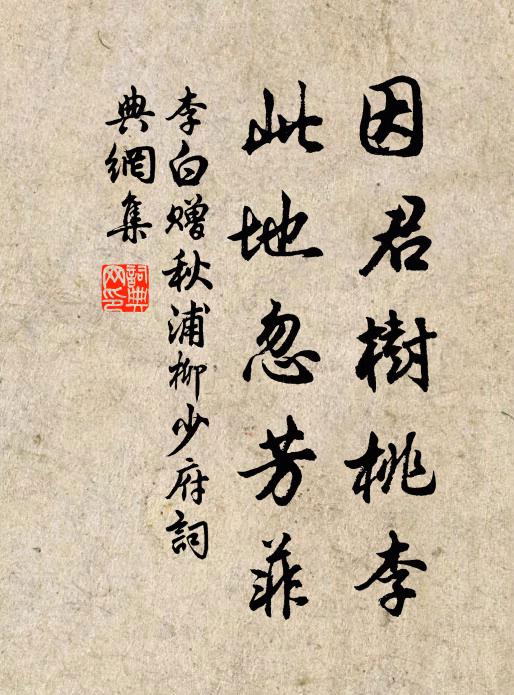 因君樹桃李
此地忽芳菲
李白赠秋浦柳少府詞
典網集
詞典
网印